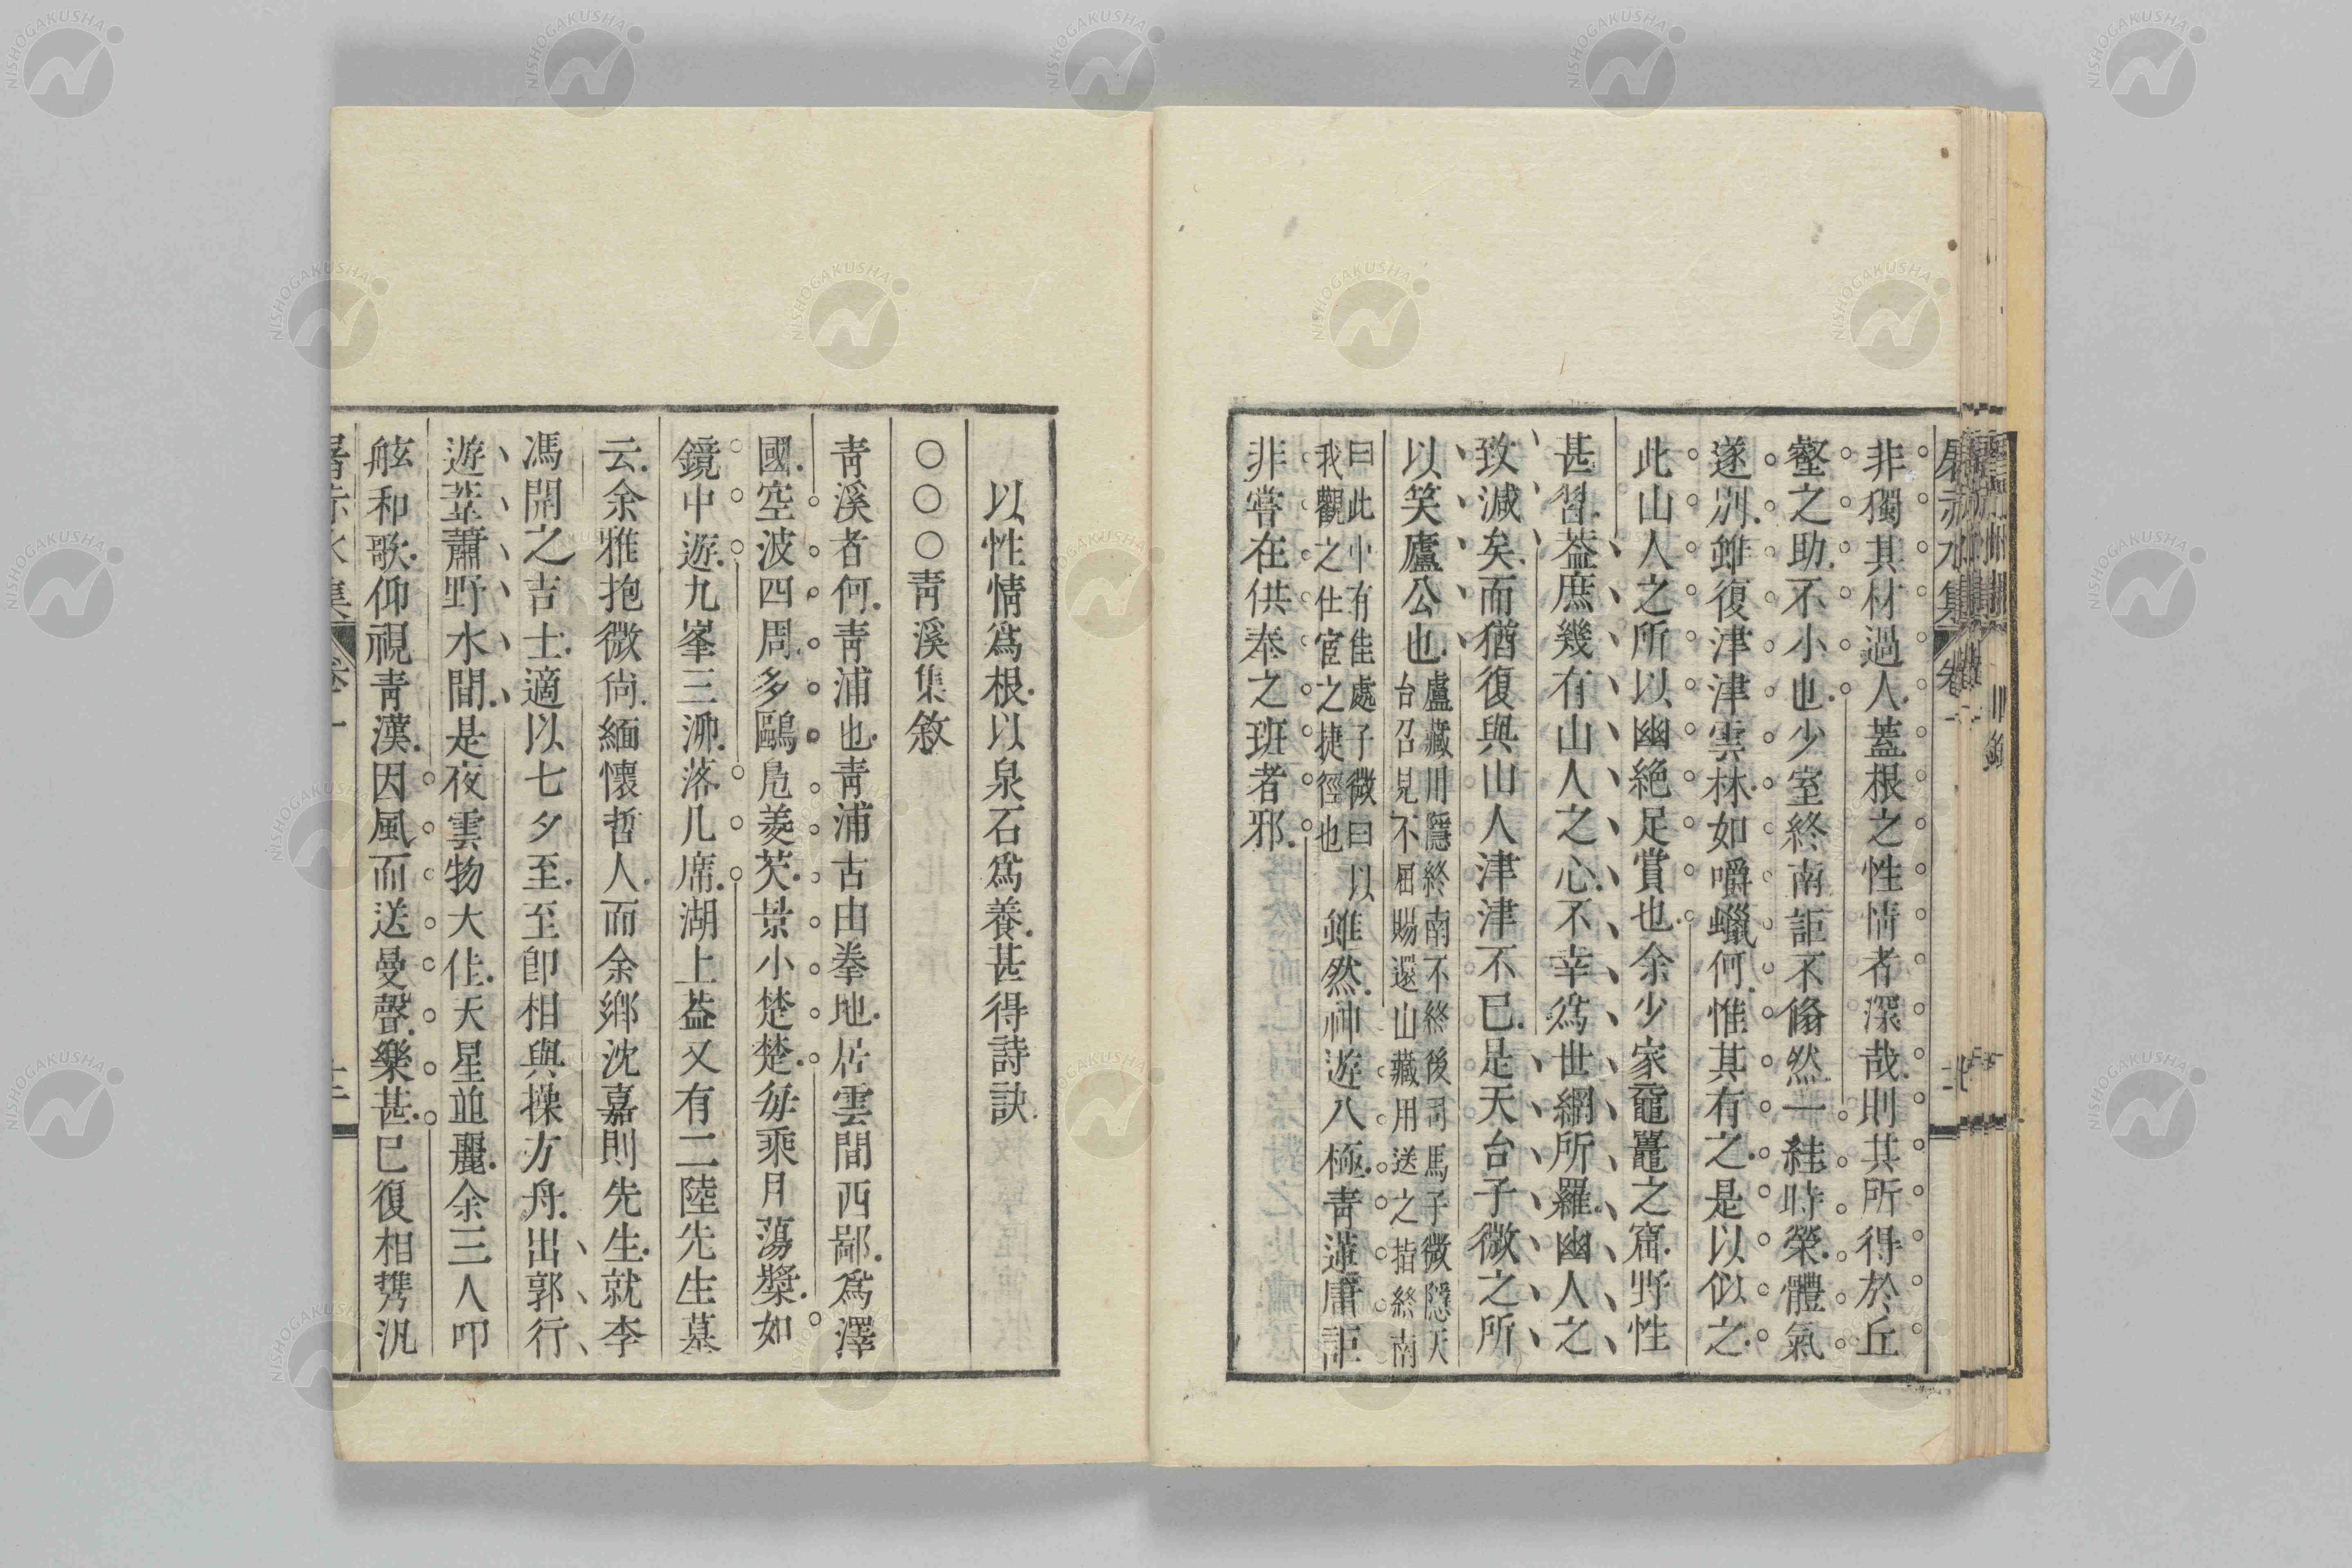 屠赤水集 卷一
非獨其材過人蓋根之性情者深哉則其所得於丘
壑之助不小也少室終南詎不翛然一絓時榮體氣
遂別雖復津津雲林如嚼蠟何惟其有之是以似之
此山人之所以幽絕足賞也余少家黿鼉之窟野性
甚習葢庶幾有山人之心不幸為世網所羅幽人之
致減矣而猶復與山人津津不已是天台子微之所
以笑盧公也
盧藏用隱終南不終後司馬子微隱天
台召見不屈賜還山藏用送之指終南
曰此中有佳處子微曰以
我觀之仕宦之捷徑也
雖然神遊八極青蓮庸詎
非嘗在供奉之班者邪
以性情爲根以泉石爲養甚得詩訣
○○○靑溪集敘
靑溪者何靑浦也靑浦古由拳地居雲間西鄙爲澤
國空波四周多鷗鳧菱芡景小楚楚每乘月蕩槳如
鏡中遊九峯三泖落几席湖上葢又有二陸先生墓
云余雅抱微尙緬懷哲人而余鄉沈嘉則先生就李
馮開之吉士適以七夕至至卽相與操方舟出郭行
遊菰蘆野水間是夜雲物大佳天星並麗余三人叩
舷和歌仰視靑漢因風而送曼聲樂甚已復相攜汎
屠赤水集 卷一
NISHOGAKUSHA